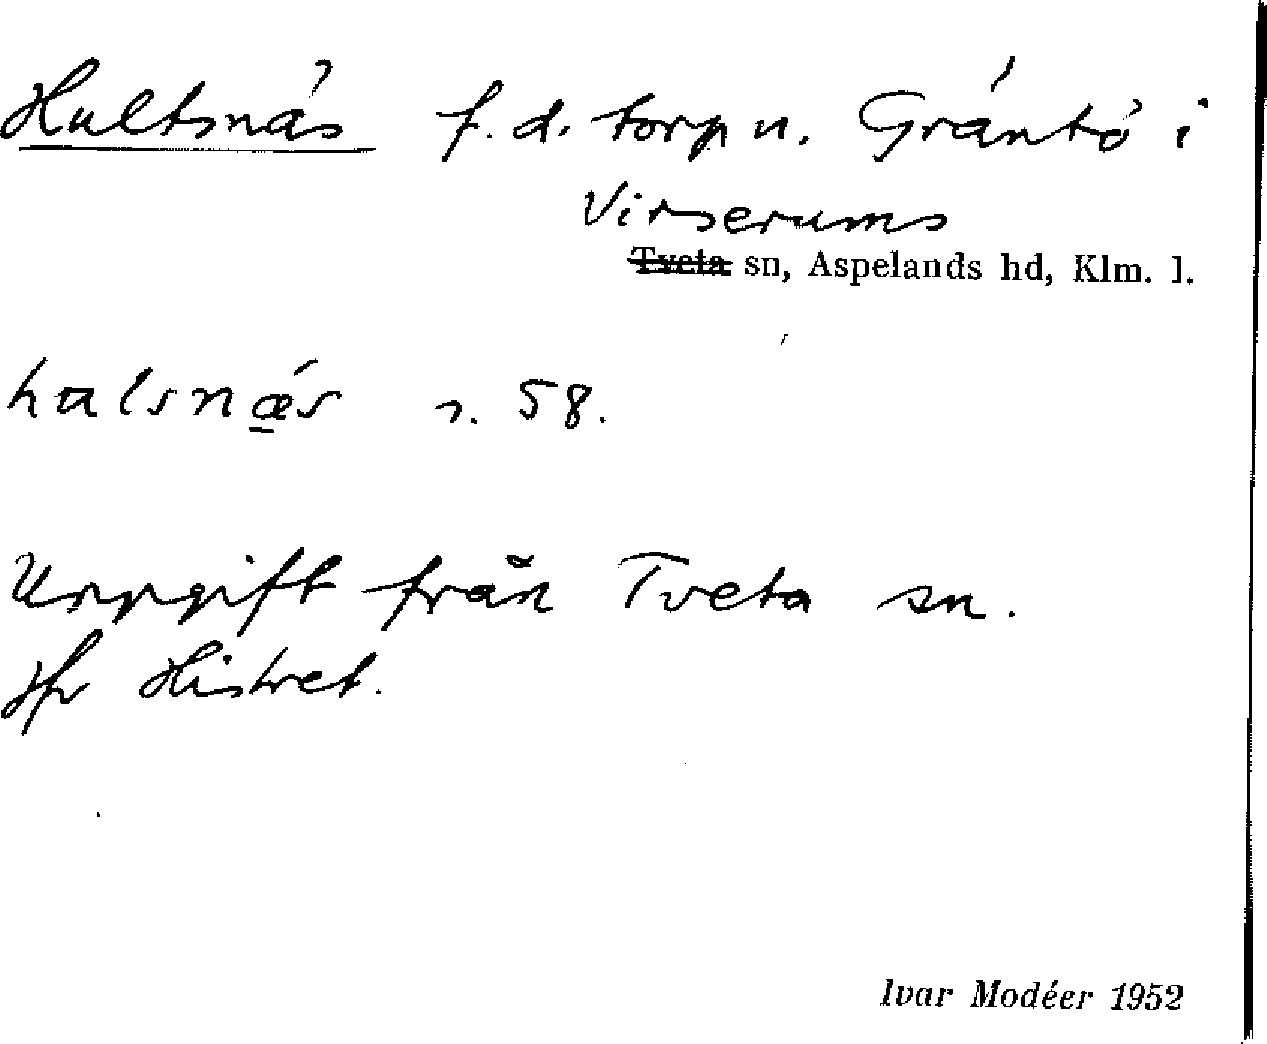 Hultsnäs f. d. torp u. Gräntö i
Virserums
Tveta sn, Aspelands hd, Klm. l.
hulsnǽ̱s s. 58.
Uppgift från Tveta sn.
Jfr Histret.
Ivar Modéer 1952